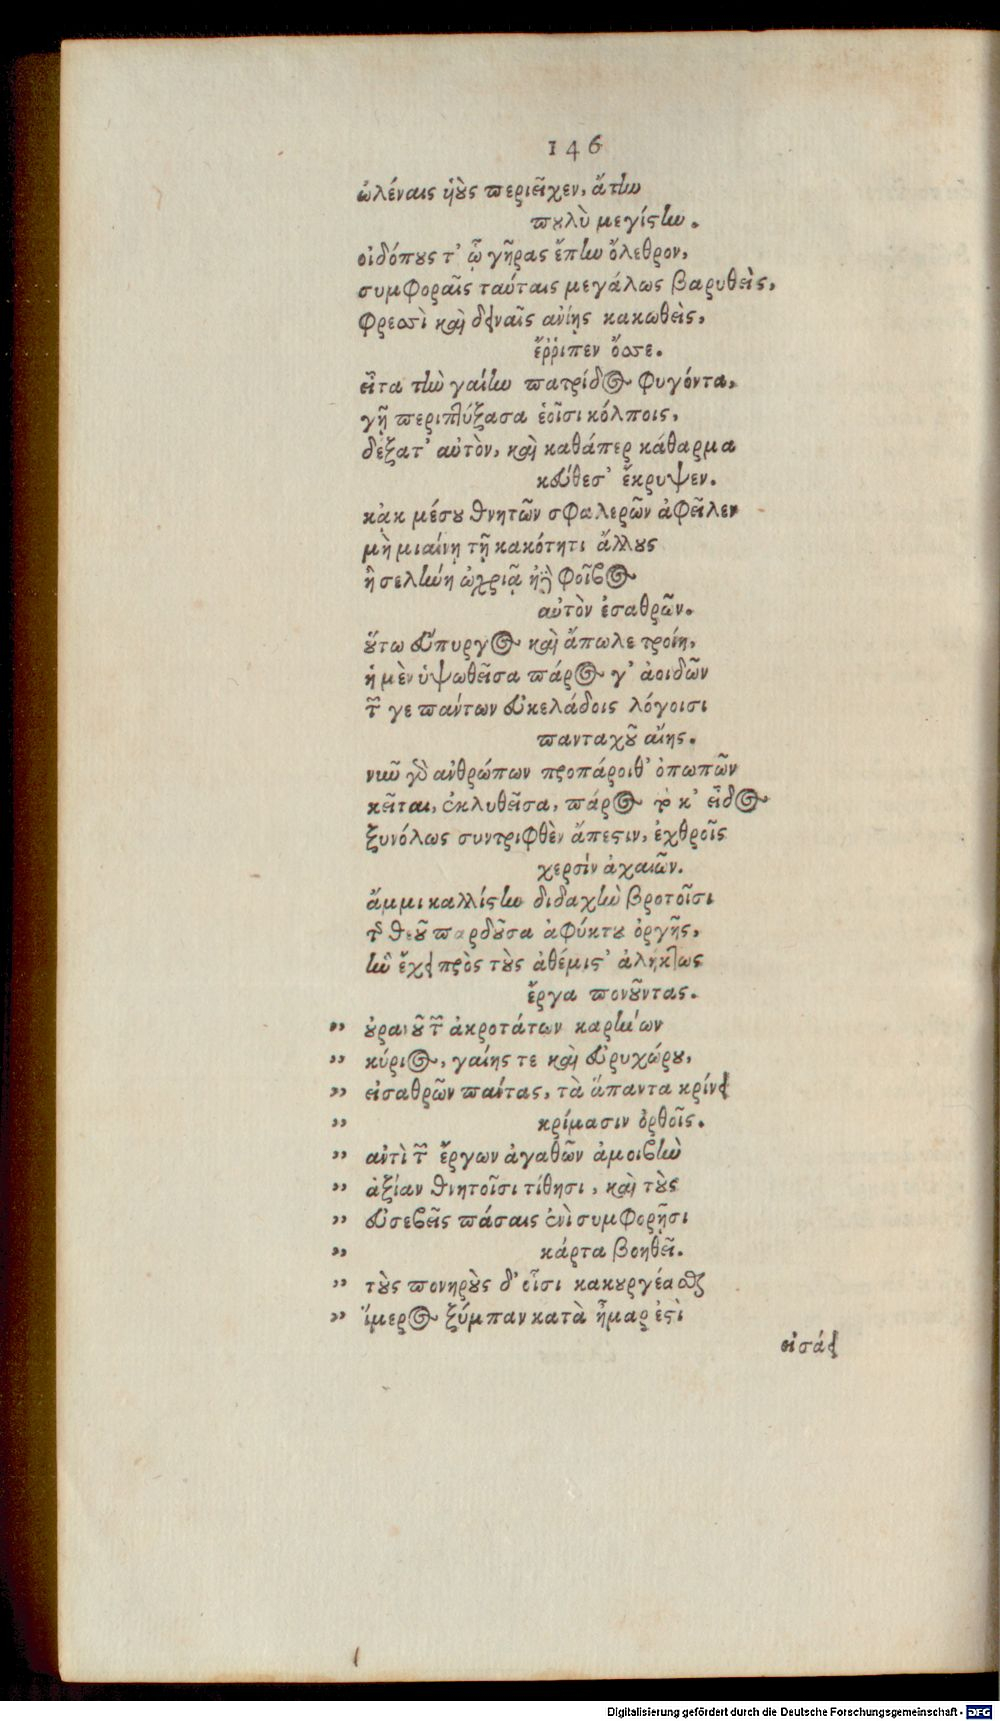 146
ὠλέναις ἡοὺς περιεῖχεν, ἄτην
πουλὺ μεγίστην.
οἰδόπους τ' ᾧ γῆρας ἔπλω ὄλεθρον,
συμφοραῖς ταύταις μεγάλως βαρυθεὶς,
φρεσσὶ καὶ δειναῖς ἀνίης κακωθεὶς,
ἔῤῥιπεν ὄσσε.
εἶτα τὴν γαίην πατρίδος φυγόντα,
γῆ περιπτύξασα ἑοῖσι κόλποις,
δέξατ' αὐτὸν, καὶ καθάπερ κάθαρμα
κεύθεσ' ἔκρυψεν.
κἀκ μέσου θνητῶν σφαλερῶν ἀφεῖλεν
μὴ μιαίνῃ τῇ κακότητι ἄλλους
ἢ σελήνη ὠχριᾷ φοῖβος
αὐτὸν ἐσαθρῶν.
οὕτω εὔπυργος καὶ ἄπωλε τροίη,
ἡ μὲν ὑψωθεῖσα πάρος γ' ἀοιδῶν
τῶν γε πάντων εὐκελάδοις λόγοισι
πανταχοῦ αἴης.
νῦν γὰρ ἀνθρώπων προπάροιθ' ὀπωπῶν
κεῖται, ἐκλυθεῖσα, πάρος κ' εἶδος
ξυνόλως συντριφθὲν ἄπεστιν, ἐχθροῖς
χερσὶν ἀχαιῶν.
ἄμμι καλλίστην διδαχὴν βροτοῖσι
τῆς θεοῦ παρδοῦσα ἀφύκτου ὀργῆς,
ἣν ἔχει πρὸς τοὺς ἀθέμιστ' ἀλήκτως
ἔργα πονοῦντας.
" οὐρανοῦ τῶν ἀκροτάτων καρήνων
" κύριος, γαίης τε καὶ εὐρυχώρου,
" εἰσαθρῶν πάντας, τὰ ἅπαντα κρίνει
" κρίμασιν ὀρθοῖς.
" ἀντὶ τῶν ἔργων ἀγαθῶν ἀμοιβὴν
" ἀξίαν θνητοῖσι τίθησι, καὶ τοὺς
" εὐσεβεῖς πάσαις ἐνὶ συμφορῇσι
" κάρτα βοηθεῖ.
" τοὺς πονηροὺς δ' οἷσι κακουργέασθαι
" ἵμερος ξύμπαν κατὰ ἦμαρ ἐστὶ
εἰσάει
Digitalisierung gefördert durch die Deutsche Forschungsgemeinschaft - DFG